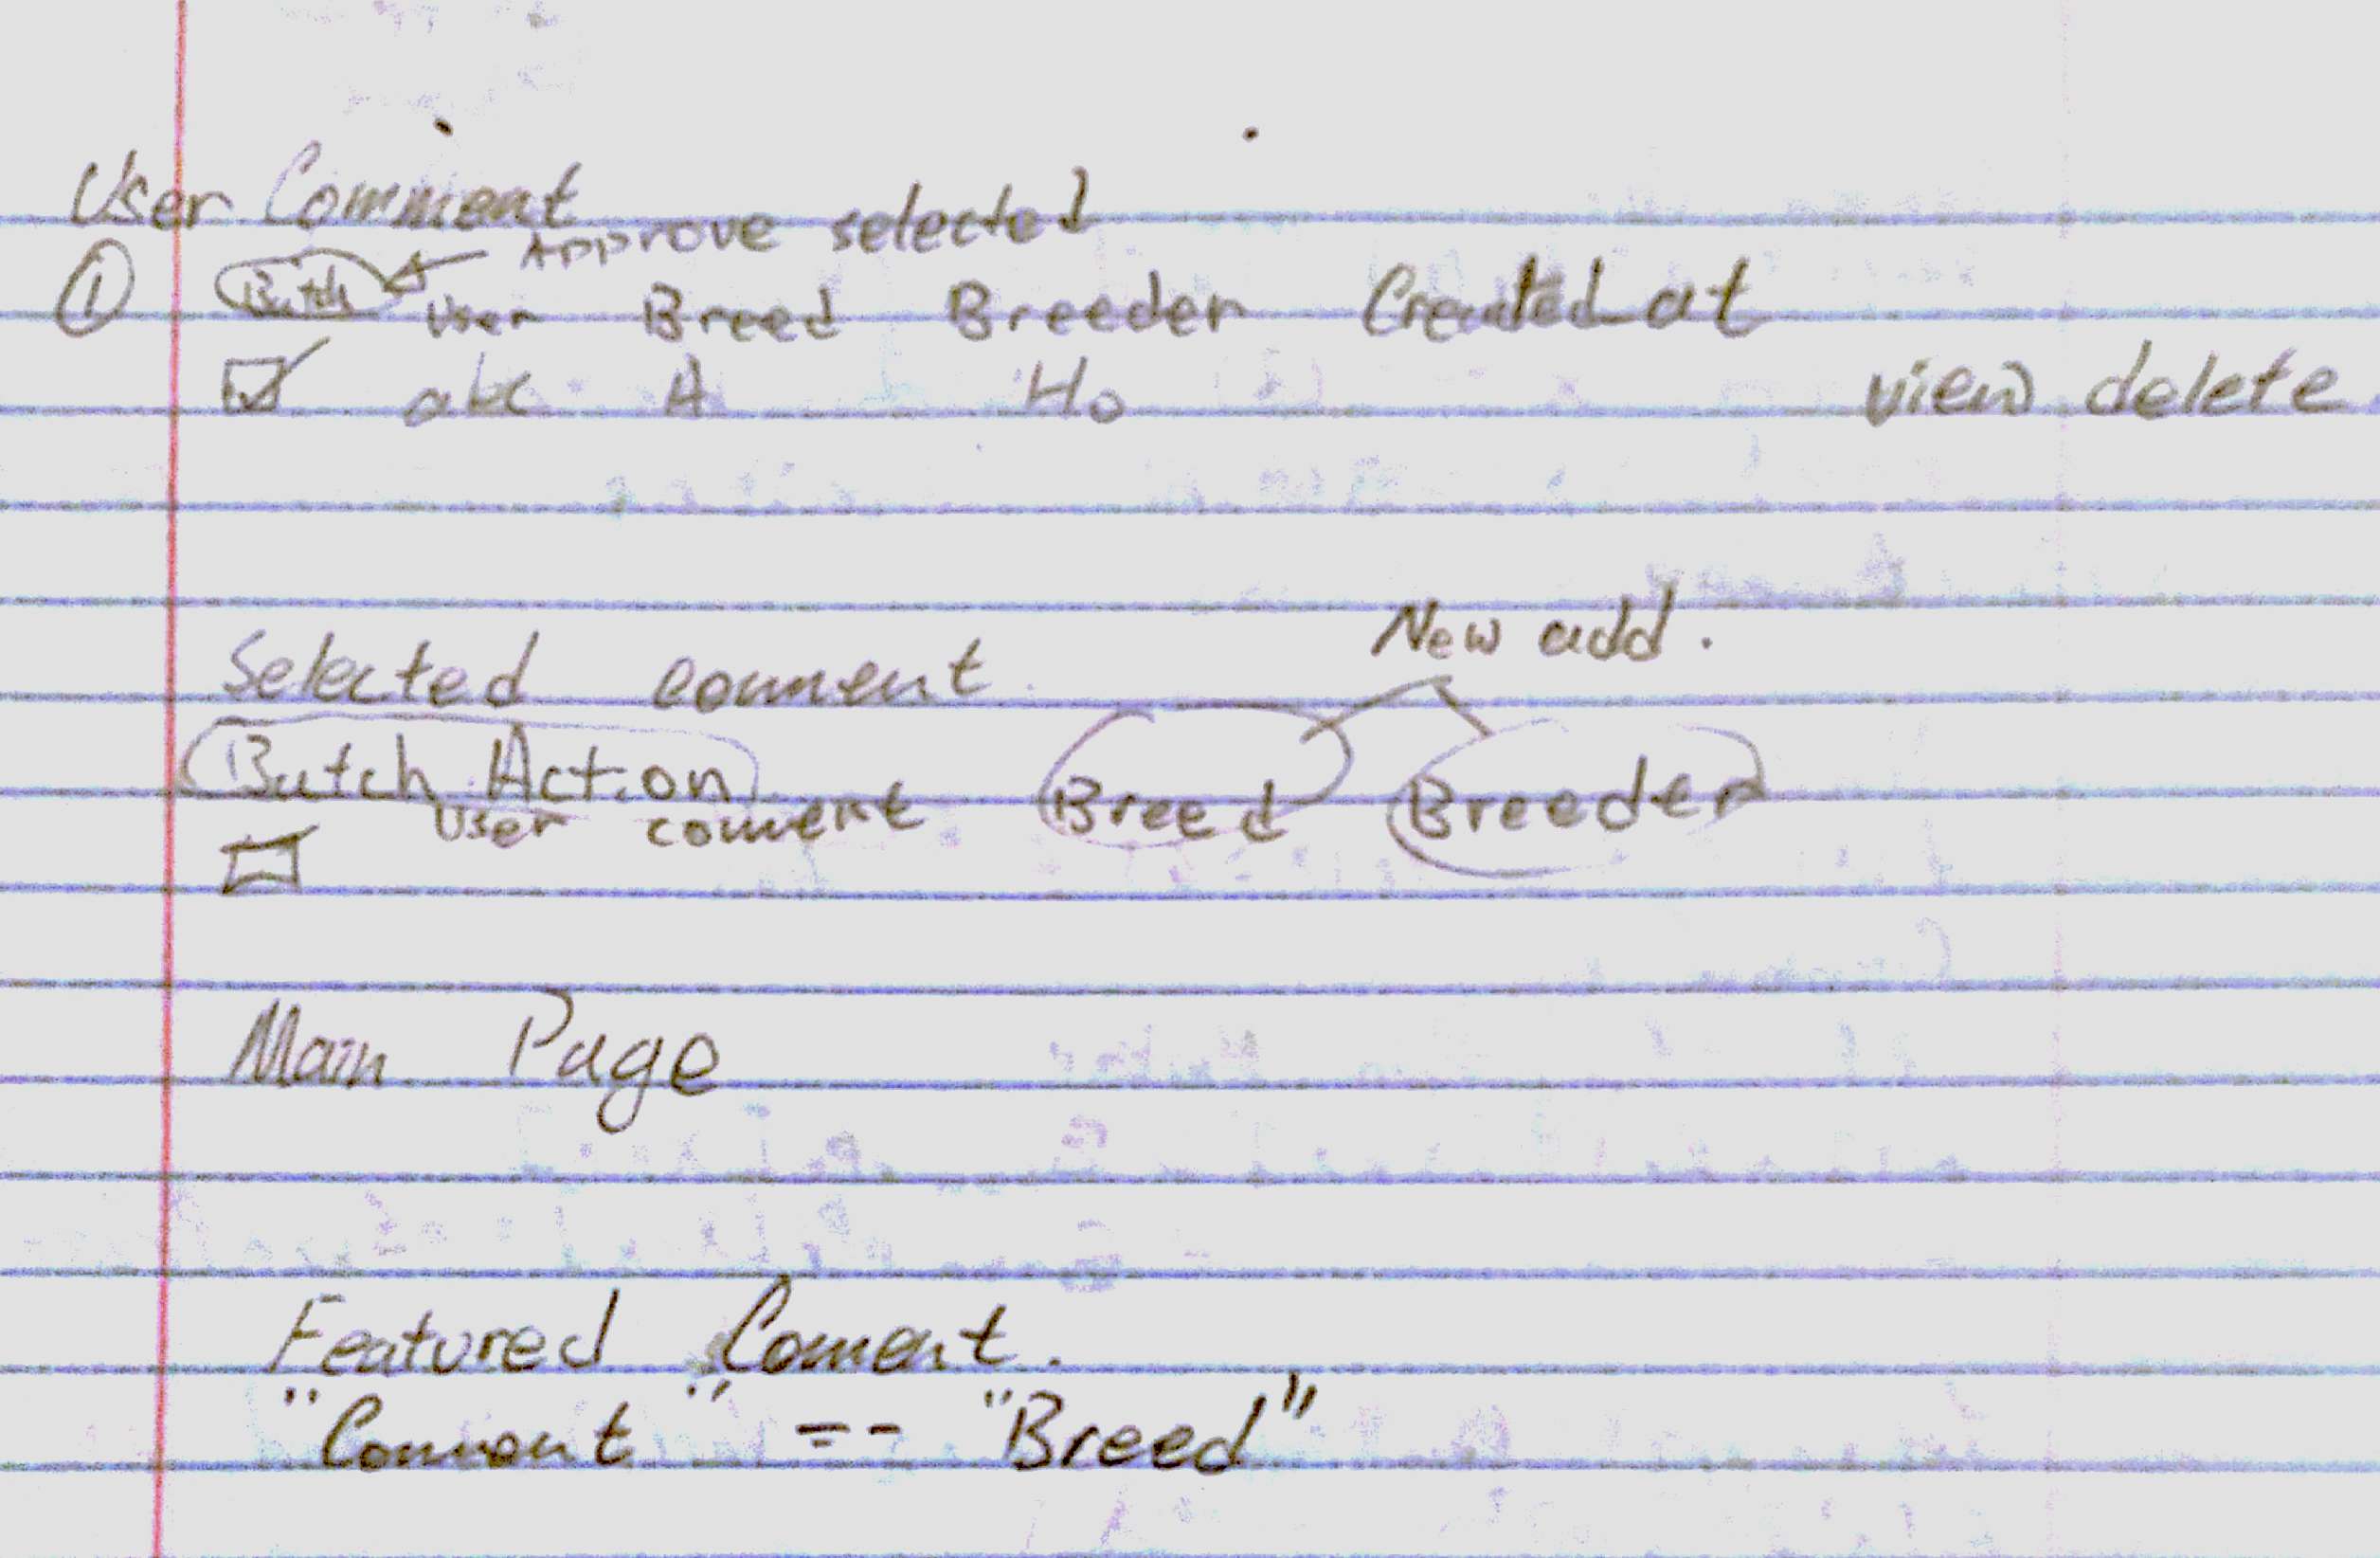 User Comment
Approve selected
① Batch User Breed Breeder Created at
abc A Ho view delete
New add.
Selected comment
Batch Action
User comment Breed Breeder
Main Page
Featured Coment.
"Comment" -- "Breed"